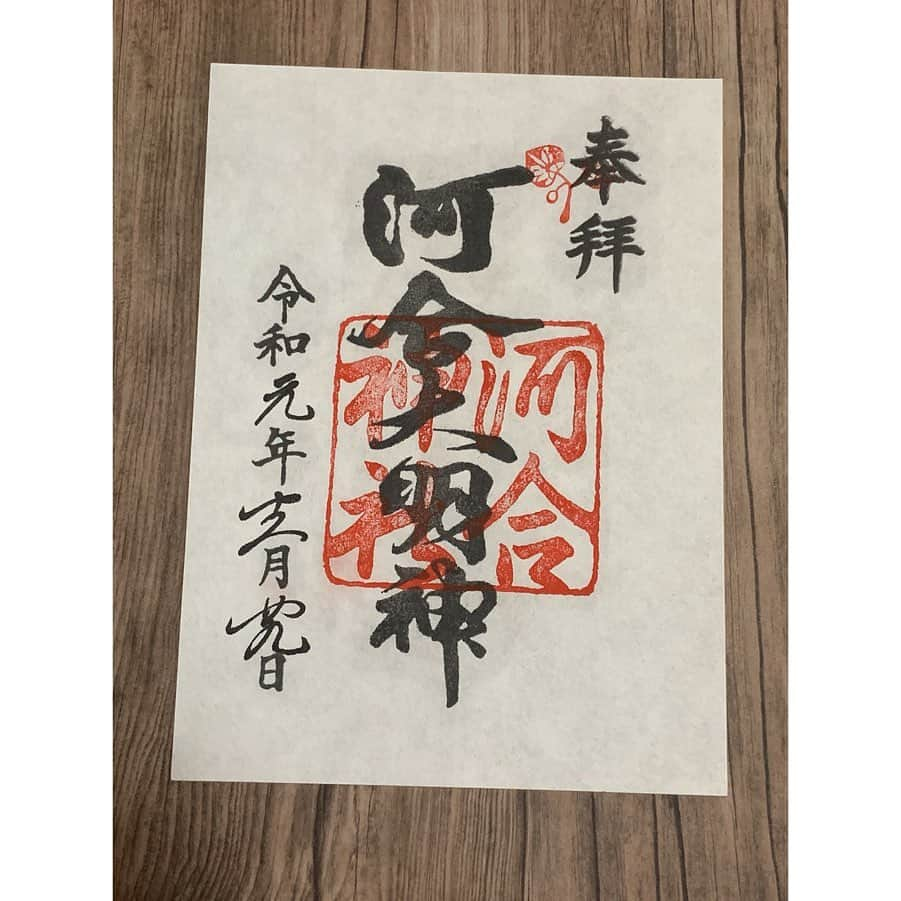 奉拝
河合大明神
河合
神社
令和元年十二月廿九日